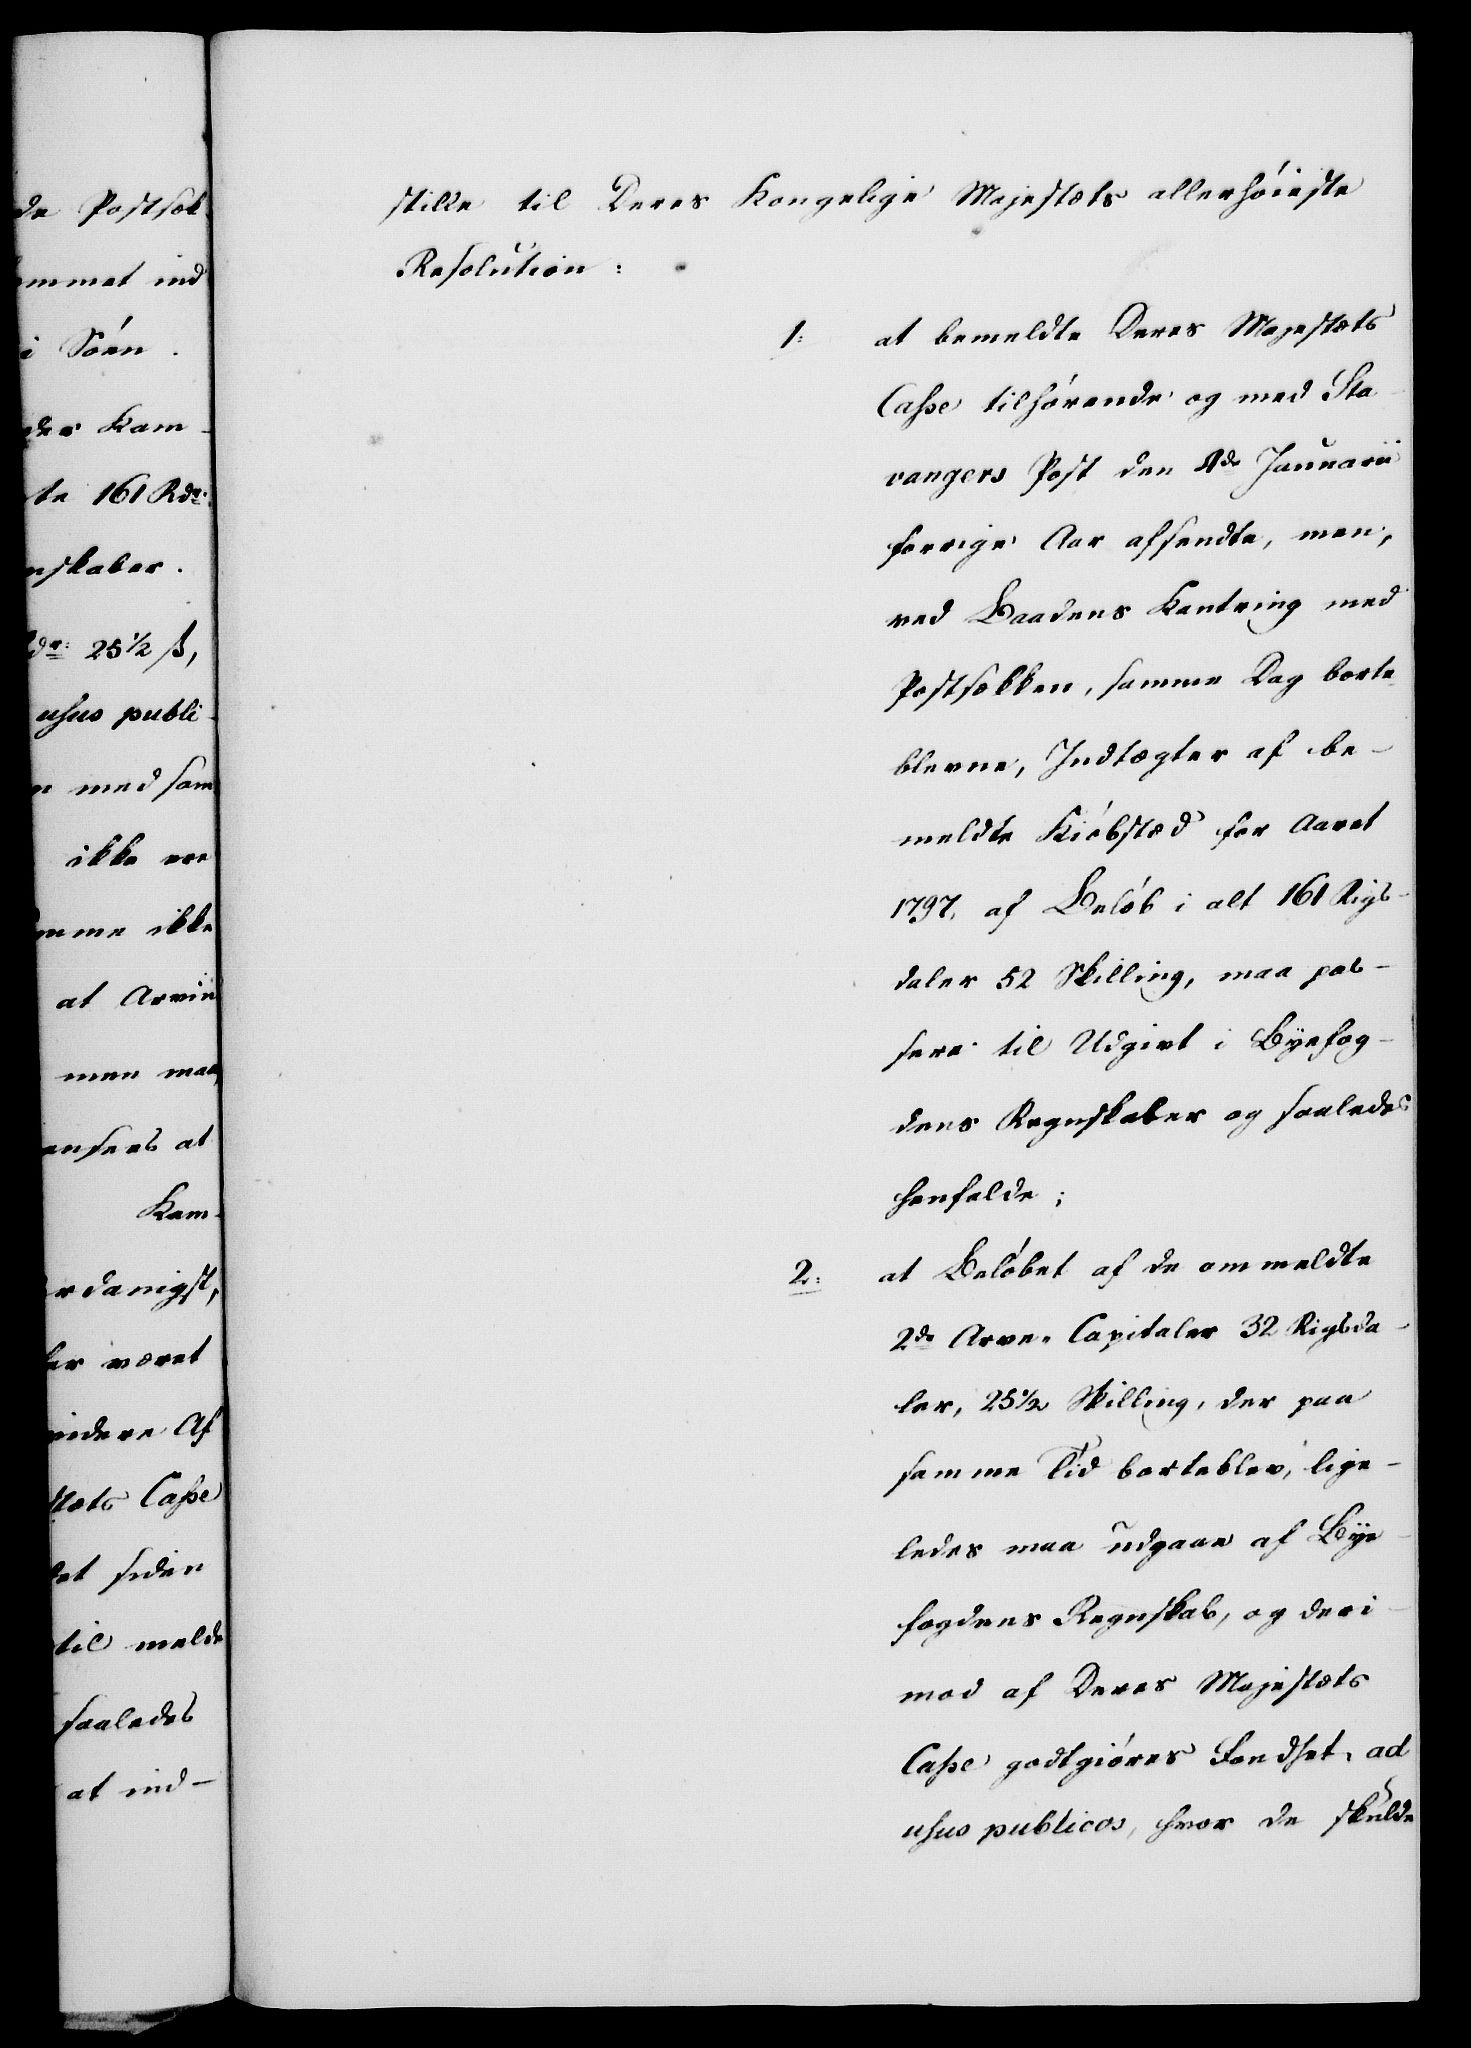 de Postsæk
ommet ind
i Søen.
des Kam-
te 161 Rdr.
nskaber.
dr: 25 1/2 ß,
usus publi-
n med sam
ikke ere
omme ikke
at Arvin
men maa,
ansees at
Kam-
rdanigst,
ler været
videre Af
stæts Casse
det siden
til melde
saaledes
at ind-
stille til Deres Kongelige Majestæts allerhøieste
Resolution:
1: at bemeldte Deres Majestæts
Casse tilhørende og med Sta-
vangers Post den 8de Januarii
forrige Aar afsendte, men,
ved Baadens Kantring med
Postsækken, samme Dag borte-
blevne, Indtægter af be-
meldte Kiøbstæd for Aaret
1797, af Beløb i alt 161 Rigs-
daler 52 Skilling, maa pas-
sere til Udgivt i Byefog-
dens Regnskaber og saaledes
henfalde;
2: at Beløbet af de ommeldte
2de Arve-Capitaler 32 Rigsda-
ler, 25 1/2 Skilling, der paa
samme Tid borteblev, lige-
ledes maa udgaae af Bye-
fogdens Regnskab, og deri-
mod af Deres Majestæts
Casse godtgiøres Fondset, ad
usus publicos, hvor de skulde